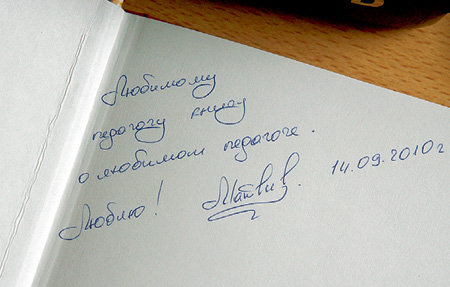 Любимому
педагогу книгу
о любимом педагоге.
Люблю! Матвив. 14.09.2010г